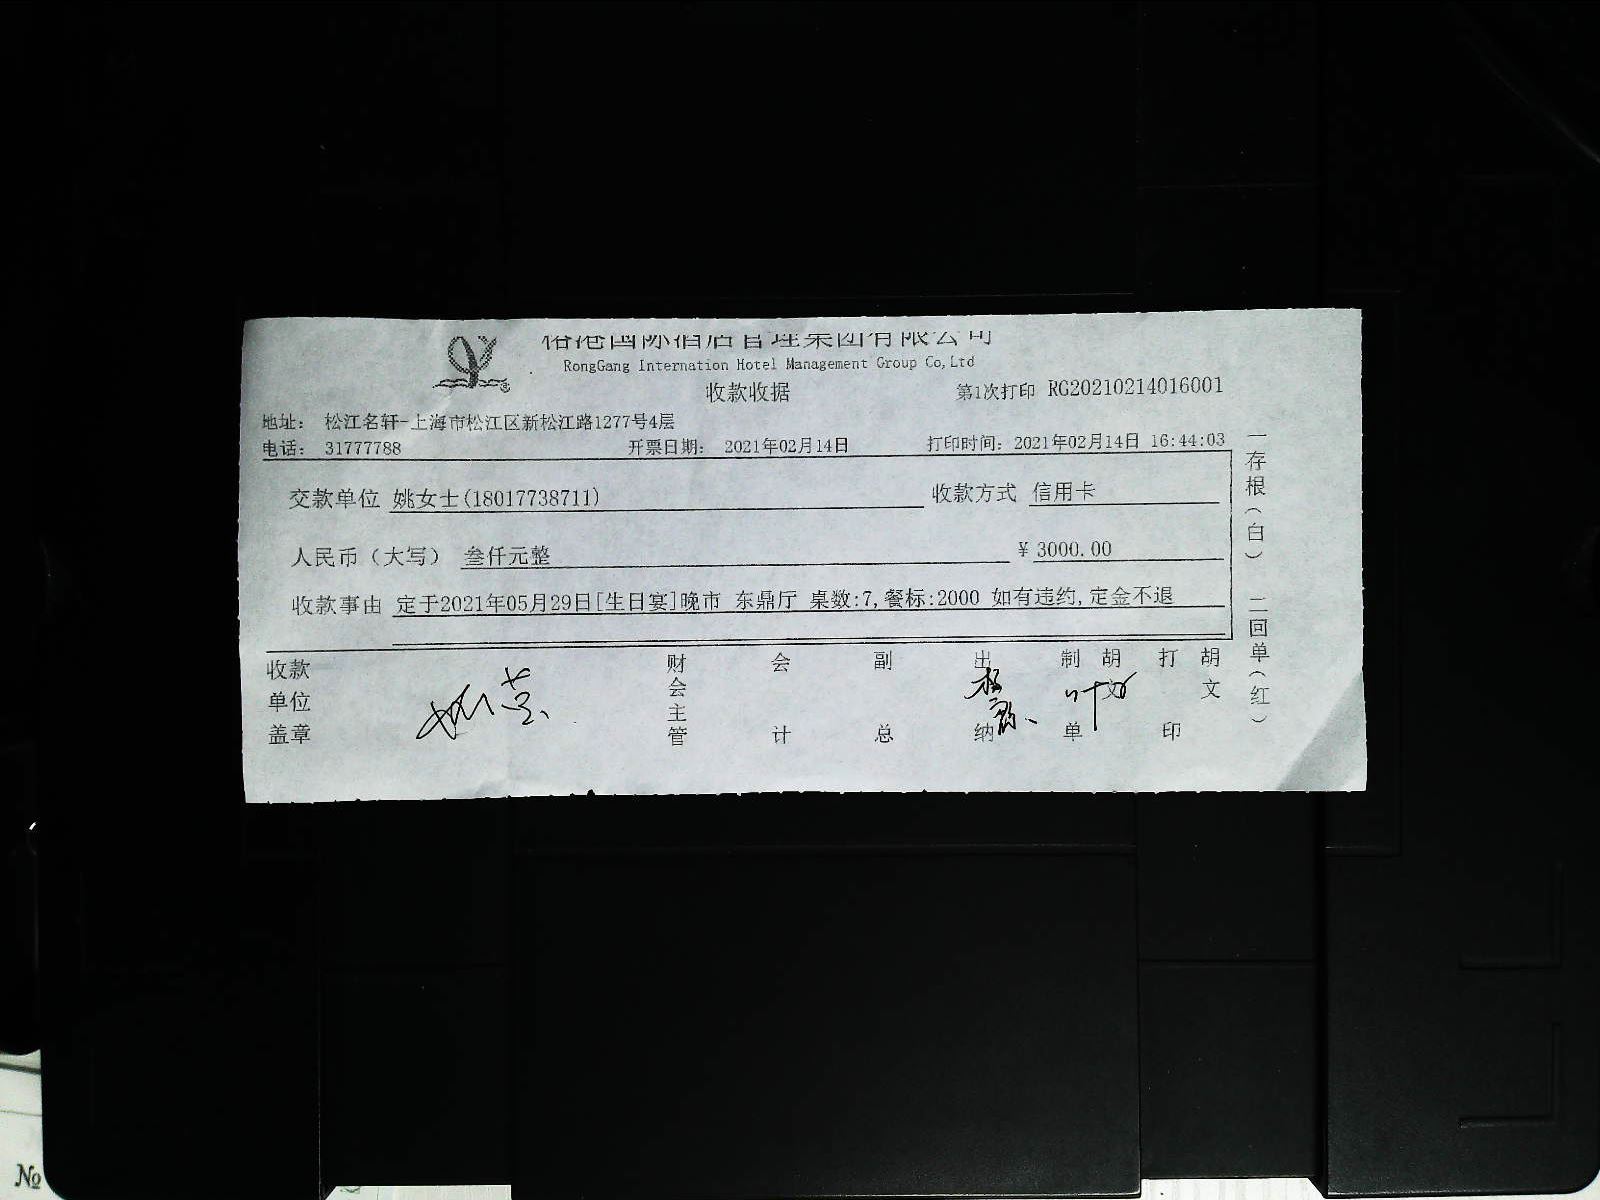 国际酒店管理集团有限公司
RongGang Internation Hotel Management Group Co,Ltd
收款收据
第1次打印 RG20210214016001
地址： 松江名轩-上海市松江区新松江路1277号4层
电话： 31777788 开票日期： 2021年02月14日 打印时间：2021年02月14日 16:44:03
交款单位 姚女士(18017738711) 收款方式 信用卡
人民币（大写） 叁仟元整 ¥ 3000.00
收款事由 定于2021年05月29日[生日宴]晚市 东鼎厅 桌数:7,餐标:2000 如有违约,定金不退
收款单位盖章
财会主管
会计
副总
出纳
制单
胡文
打印
胡文
一存根（白） 二回单（红）
№